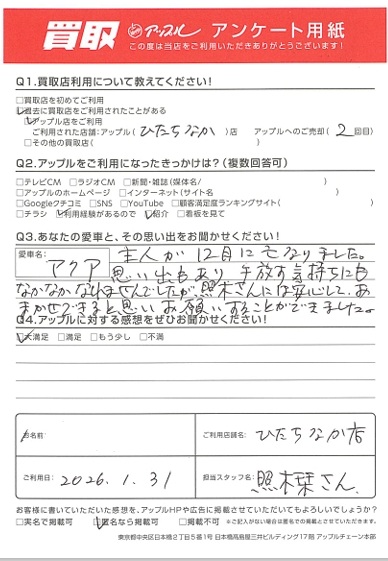 買取 アップル アンケート用紙
この度は当店をご利用いただきありがとうございます！
Q1.買取店利用について教えてください！
□買取店を初めてご利用
☑過去に買取店をご利用されたことがある
☑アップル店をご利用
ご利用された店舗:アップル( ひたちなか )店 アップルへのご売却( 2 回目)
□その他の買取店( )
Q2.アップルをご利用になったきっかけは？(複数回答可)
□テレビCM □ラジオCM □新聞・雑誌(媒体名/ )
□アップルのホームページ □インターネット(サイト名 )
□Googleクチコミ □SNS □YouTube □顧客満足度ランキングサイト( )
□チラシ ☑利用経験があるので ☑紹介 □看板を見て
Q3.あなたの愛車と、その思い出をお聞かせください！
愛車名: アクア
主人が12月に亡なりました。
思い出もあり 手放す気持ちにも
なかなかなれませんでしたが照木さんには安心して、お
まかせできると思いお願いすることができました。
Q4.アップルに対する感想をぜひお聞かせください！
☑大満足 □満足 □もう少し □不満
お名前 ご利用店舗名: ひたちなか店
ご利用日: 2026.1.31 担当スタッフ名: 照木栞さん
お客様に書いていただいた感想を、アップルHPや広告に掲載させていただいてもよろしいでしょうか？
□実名で掲載可 ☑匿名なら掲載可 □掲載不可 ※ご記入がない場合は匿名での掲載とさせていただきます。
東京都中央区日本橋2丁目5番1号 日本橋髙島屋三井ビルディング17階 アップルチェーン本部